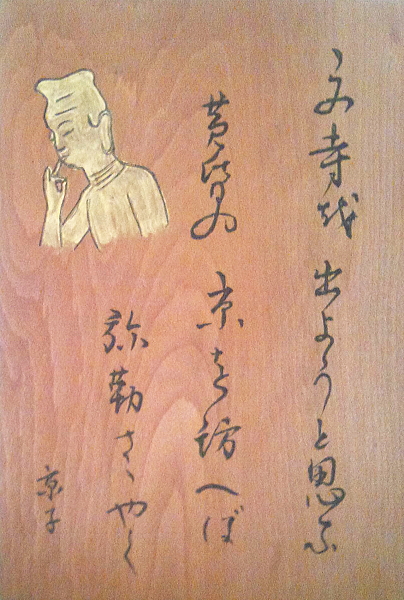 寺を 出ようと思ふ
黄昏の 京を訪へば
弥勒さゝやく
京子